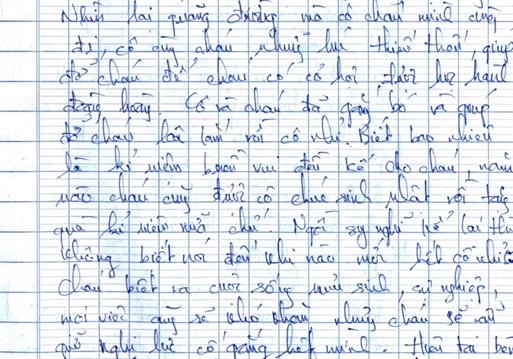 Nhìn lại quãng đường mà cô cháu mình cùng
đi, cô cùng cháu những lúc thiếu thốn, giúp
đỡ cháu để cháu có cơ hội được học hành
đàng hoàng. Cô và cháu đã gắn bó và giúp
đỡ cháu lâu lắm rồi cô nhỉ. Biết bao nhiêu
là kỉ niệm buồn vui đến kể cho cháu, năm
nào cháu cũng được cô chúc sinh nhật rồi tặng
quà kỉ niệm nữa chứ. Ngồi suy nghĩ kể lại thì
không biết nói đến khi nào mới hết cô nhỉ.
Cháu biết ra cuộc sống mưu sinh, sự nghiệp,
mọi việc cũng sẽ khó khăn nhưng cháu sẽ vẫn
giữ nghị lực cố gắng hết mình. Hiện tại bên